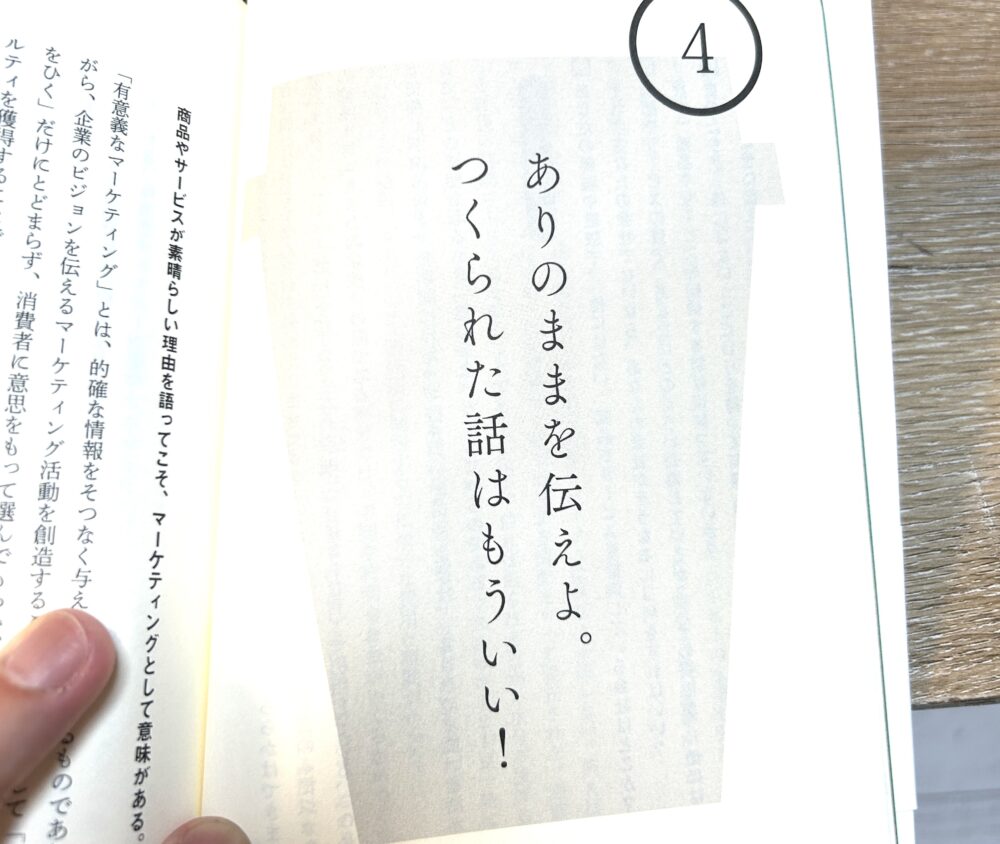 4
ありのままを伝えよ。
つくられた話はもういい！
商品やサービスが素晴らしい理由を語ってこそ、マーケティングとして意味がある。
「有意義なマーケティング」とは、的確な情報をそつなく与え
がら、企業のビジョンを伝えるマーケティング活動を創造する
をひく」だけにとどまらず、消費者に意思をもって選んで
ルティを獲得する
るものであ